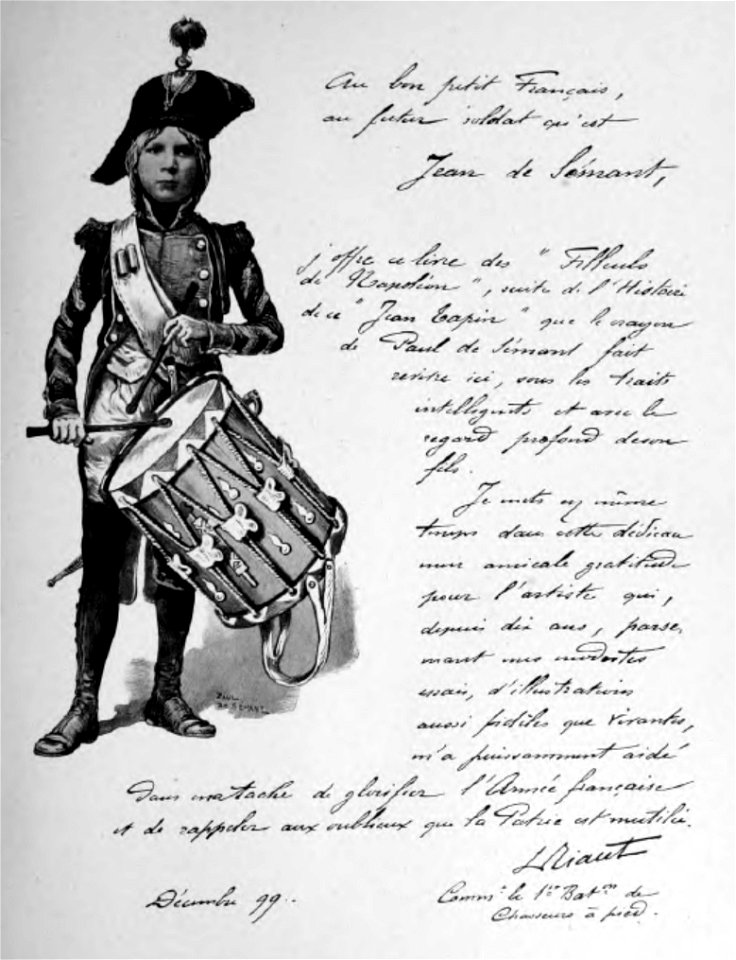 Au bon petit Français,
au futur soldat qu'est
Jean de Sémant,
j'offre ce livre des "Filleuls
de Napoléon", suite de l'Histoire
de ce "Jean Tapin" que le crayon
de Paul de Sémant fait
revivre ici, sous les traits
intelligents et avec le
regard profond de son
fils.
Je mets en même
temps dans cette dédicace
mon amicale gratitude
pour l'artiste qui,
depuis dix ans, parse-
mant mes modestes
essais, d'illustrations
aussi fidèles que vivantes,
m'a puissamment aidé
dans ma tâche de glorifier l'Armée française
et de rappeler aux oublieux que la Patrie est mutilée.
Décembre 99.
Comm.t le 1er Bat.on de
Chasseurs à pied.
PAUL
DE SEMANT